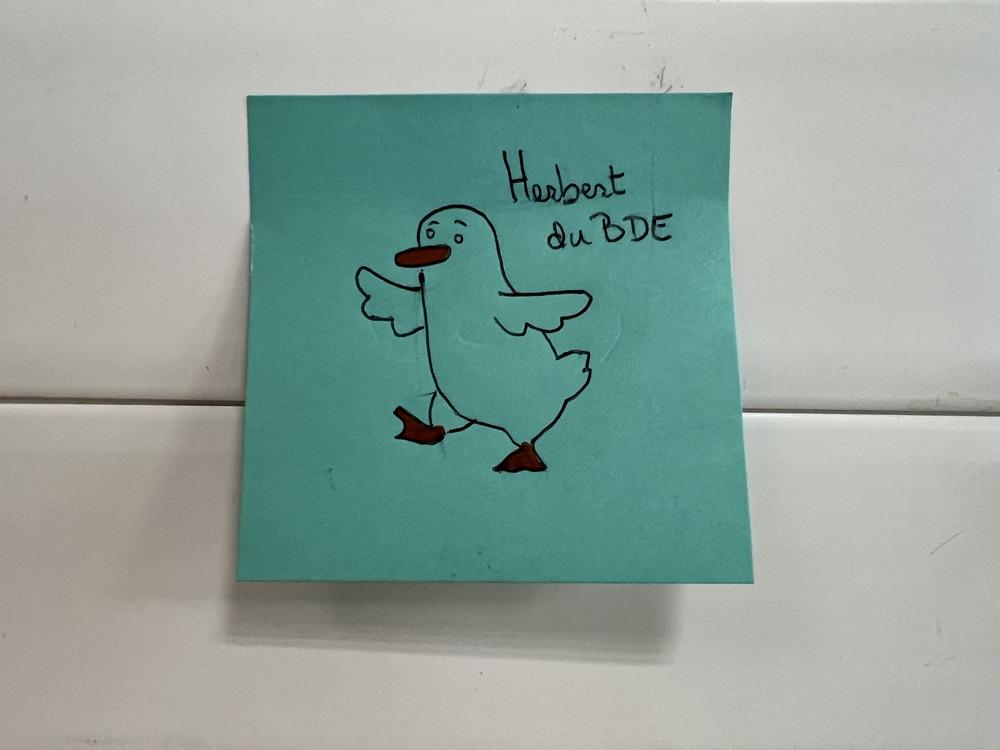 Herbert
du BDE